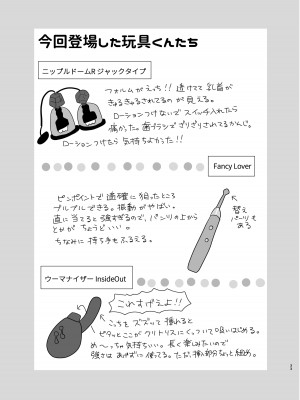 今回登場した玩具くんたち
ニップルドームR ジャックタイプ
フォルムがえっち!! 透けてて乳首が
きゅるきゅるされてるのが見える。
ローションつけないでスイッチ入れたら
痛かった。歯ブラシでゴリゴリされてるかんじ。
ローションつけたら気持ちよかった!!
Fancy Lover
ピンポイントで適確に狙ったところ
プルプルできる。振動がやばい。
直に当てると強すぎるので、パンツの上から
とかがちょうどいい。
ちなみに持ち手もふるえる。
替え
パーツも
ある
ウーマナイザー InsideOut
これすげえよ!!
こっちをズズッて挿れると
ピタッとここがクリトリスにくっついて吸いはじめる。
め〜〜っちゃ気持ちいい。長く楽しみたいので
強さはあげずに使ってる。ただ、挿入部分ちょっと細め。